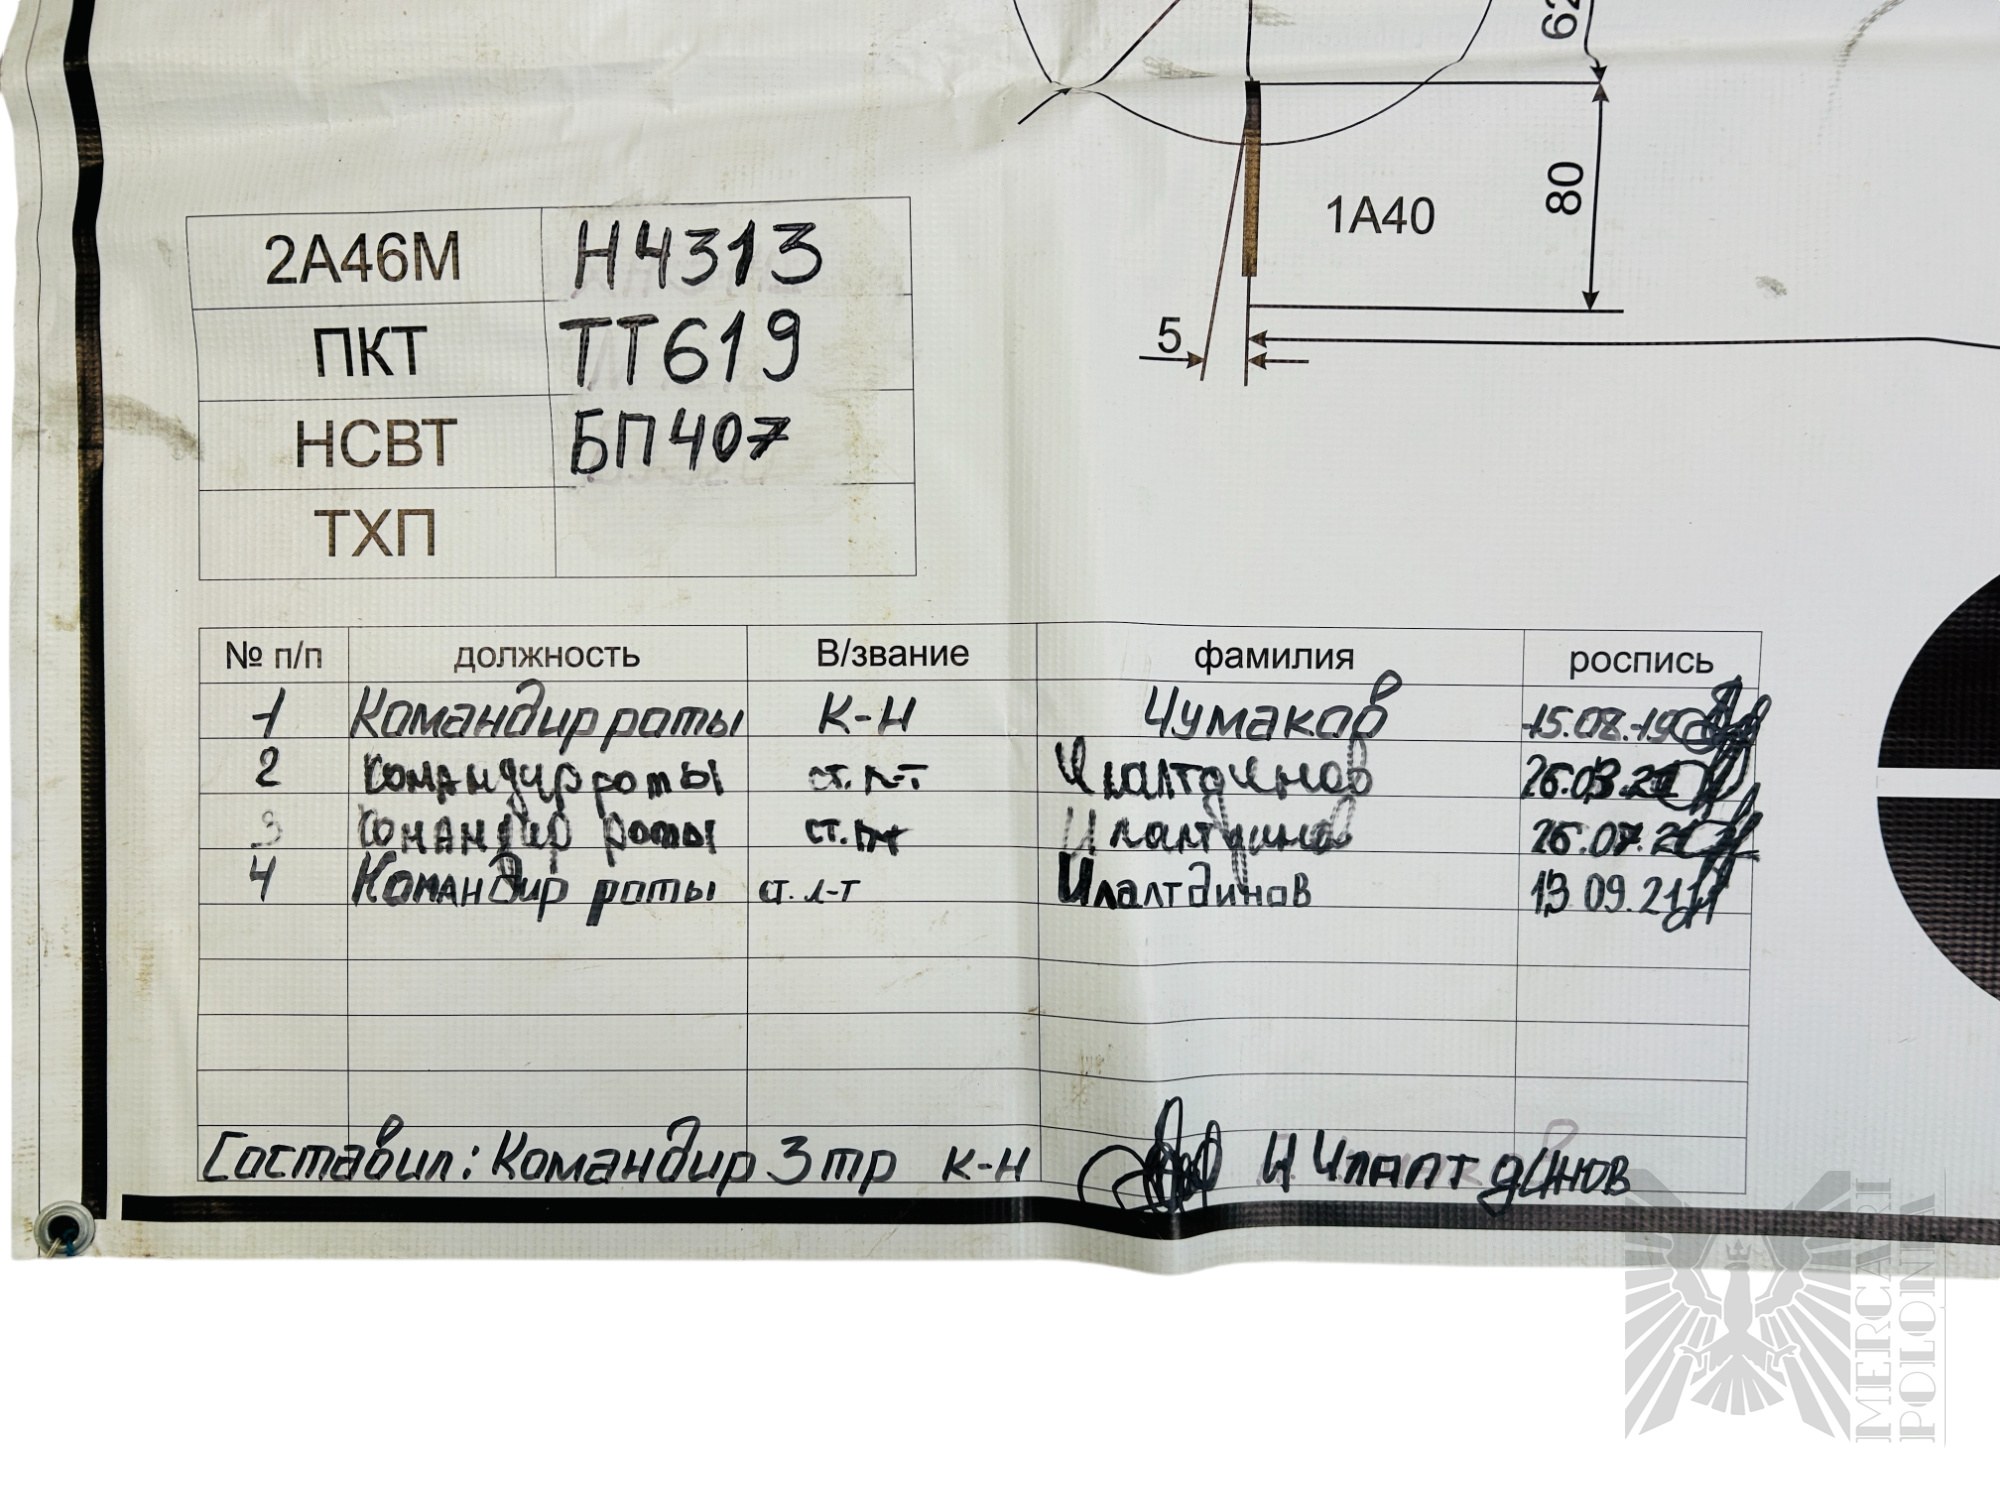 62
80
1А40
5
2А46М Н4313
ПКТ ТТ619
НСВТ БП407
ТХП
№ п/п должность В/звание фамилия роспись
1 Командир роты К-Н Чумаков 15.08.19
2 Командир роты ст. л-т Илалтдинов 26.03.21
3 Командир роты ст. Илалтдинов 26.07.21
4 Командир роты ст. л-т Илалтдинов 13 09.21
Составил: Командир 3 тр к-н Илалтдинов
MERCARI
POLONIA